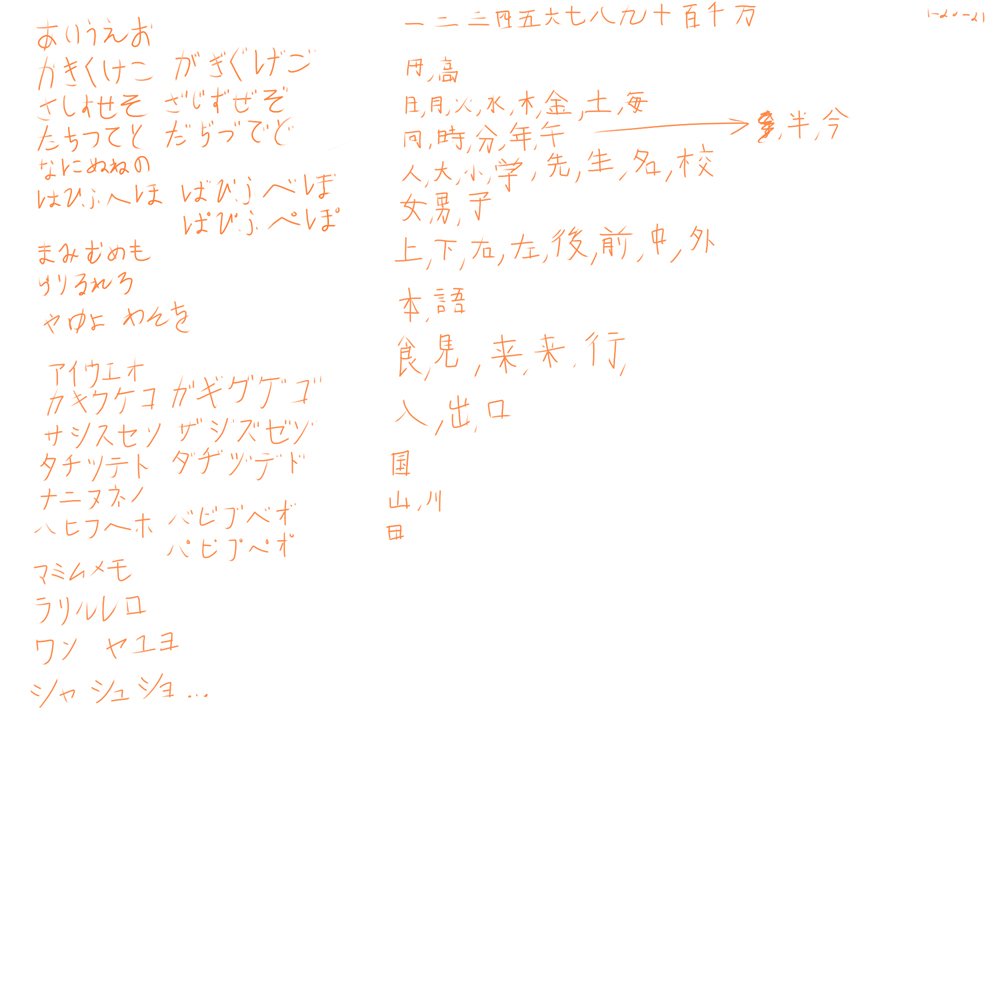 あいうえお
かきくけこ がぎぐげご
さしすせそ ざじずぜぞ
たちつてと だぢづでど
なにぬねの
はひふへほ ばびぶべぼ
ぱぴぷぺぽ
まみむめも
りるれろ
やゆよ わんを
アイウエオ
カキクケコ ガギグゲゴ
サシスセソ ザジズゼゾ
タチツテト ダヂヅデド
ナニヌネノ
ハヒフヘホ バビブベボ
パピプペポ
マミムメモ
ラリルレロ
ワン ヤユヨ
シャ シュ ショ...
一二三四五六七八九十百千万
1-20-21
円,高
日,月,火,水,木,金,土,毎
何,時,分,年,午 → ,半,今
人,大,小,学,先,生,名,校
女,男,子
上,下,右,左,後,前,中,外
本,語
食,見,来,来,行,
入,出,口
国
山,川
日